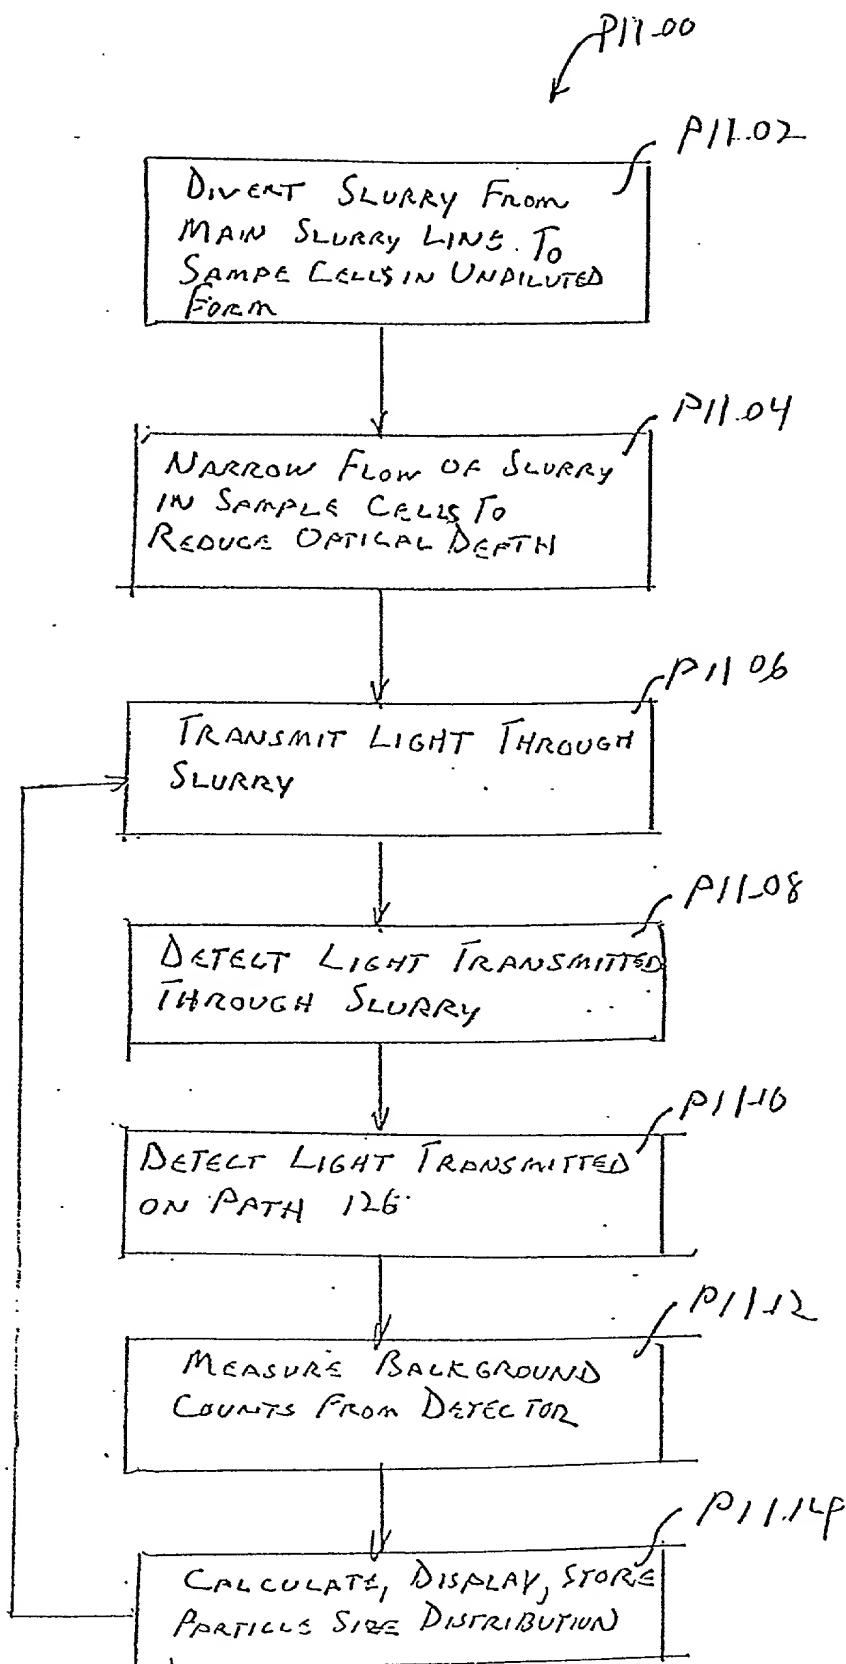 P11.00
P11.02
DIVERT SLURRY FROM
MAIN SLURRY LINE TO
SAMPE CELLS IN UNDILUTED
FORM
P11.04
NARROW FLOW OF SLURRY
IN SAMPLE CELLS TO
REDUCE OPTICAL DEPTH
P11.06
TRANSMIT LIGHT THROUGH
SLURRY
P11.08
DETECT LIGHT TRANSMITTED
THROUGH SLURRY
P11.10
DETECT LIGHT TRANSMITTED
ON PATH 126
P11.12
MEASURE BACKGROUND
COUNTS FROM DETECTOR
P11.14
CALCULATE, DISPLAY, STORE
PARTICLE SIZE DISTRIBUTION